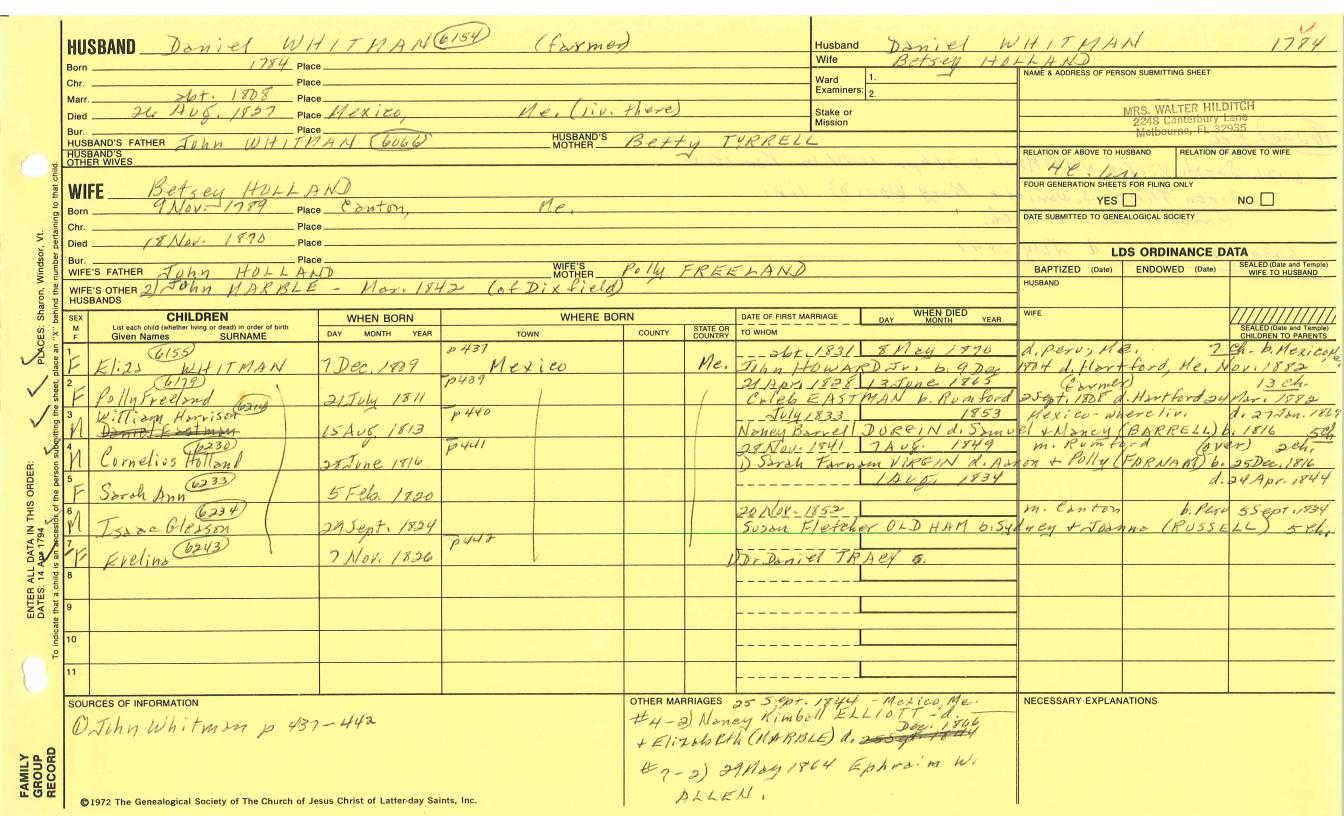 HUSBAND Daniel WHITMAN 6154 (farmer)
Born 1784 Place
Chr. Place
Marr. abt. 1808 Place
Died 26 Aug. 1837 Place Mexico, Me. (liv. there)
Bur. Place
HUSBAND'S FATHER John WHITMAN 6066 HUSBAND'S MOTHER Betty TYRRELL
HUSBAND'S OTHER WIVES
Husband Daniel WHITMAN 1784
Wife Betsey HOLLAND
Ward Examiners: 1.
2.
Stake or Mission
NAME & ADDRESS OF PERSON SUBMITTING SHEET
MRS. WALTER HILDITCH
2248 Canterbury Lane
Melbourne, FL 32935
RELATION OF ABOVE TO HUSBAND RELATION OF ABOVE TO WIFE
FOUR GENERATION SHEETS FOR FILING ONLY
YES NO
DATE SUBMITTED TO GENEALOGICAL SOCIETY
WIFE Betsey HOLLAND
Born 9 Nov. 1789 Place Canton, Me.
Chr. Place
Died 18 Nov. 1870 Place
Bur. Place
WIFE'S FATHER John HOLLAND WIFE'S MOTHER Polly FREELAND
WIFE'S OTHER HUSBANDS 2) John MARBLE - Mar. 1842 (of Dixfield)
LDS ORDINANCE DATA
BAPTIZED (Date) ENDOWED (Date) SEALED (Date and Temple) WIFE TO HUSBAND
HUSBAND
WIFE
SEALED (Date and Temple) CHILDREN TO PARENTS
SEX M F CHILDREN List each child (whether living or dead) in order of birth Given Names SURNAME WHEN BORN DAY MONTH YEAR WHERE BORN TOWN COUNTY STATE OR COUNTRY DATE OF FIRST MARRIAGE TO WHOM WHEN DIED DAY MONTH YEAR
1 6155 p437 abt. 1831 8 May 1870 d. Peru, Me. 7 ch. b. Mexico
F Eliza WHITMAN 7 Dec. 1809 Mexico Me. John HOWARD Jr. b. 9 Dec 1804 d. Hartford, Me. Nov. 1882
2 6179 p439 21 Apr. 1828 13 June 1865 (farmer) 13 ch.
F Polly Freeland 21 July 1811 Caleb EASTMAN b. Rumford 2 Sept. 1808 d. Hartford 24 Mar. 1882
3 William Harrison 6214 p440 July 1833 1853 Mexico - where liv. d. 27 Jan. 1869
M Daniel Eastman 15 Aug. 1813 Nancy Barrell DORFIN d. Samuel & Nancy (BARRELL) b. 1816 5 ch
4 6230 p441 28 Nov. 1841 7 Aug. 1849 m. Rumford (over) 2 ch.
M Cornelius Holland 28 June 1816 1) Sarah Farnam VIRGIN d. Aaron + Polly (FARNAM) b. 25 Dec. 1816
5 6233 1 Aug. 1834 d. 24 Apr. 1844
F Sarah Ann 5 Feb. 1820
6 6234 20 Nov. 1852 m. Canton b. Peru 5 Sept. 1834
M Isaac Gleason 29 Sept. 1824 Susan Fletcher OLDHAM b. Sydney + Joanna (RUSSELL) 5 ch.
7 6243 p442
F Evelina 7 Nov. 1826 1) Dr. Daniel TRACY
8
9
10
11
SOURCES OF INFORMATION
① John Whitman p 437-442
OTHER MARRIAGES 25 Sept. 1844 - Mexico, Me.
#4-2) Nancy Kimball ELLIOTT - d.
Dec. 1866
+ Elizabeth (MARBLE) d. 25 Sept. 1844
#7-2) 29 May 1864 Ephraim W.
ALLEN.
NECESSARY EXPLANATIONS
©1972 The Genealogical Society of The Church of Jesus Christ of Latter-day Saints, Inc.
FAMILY GROUP RECORD
ENTER ALL DATA IN THIS ORDER:
DATES: 14 Apr 1794 PLACES: Sharon, Windsor, Vt.
To indicate that a child is an ancestor of the person submitting the sheet, place an "X" behind the number pertaining to that child.